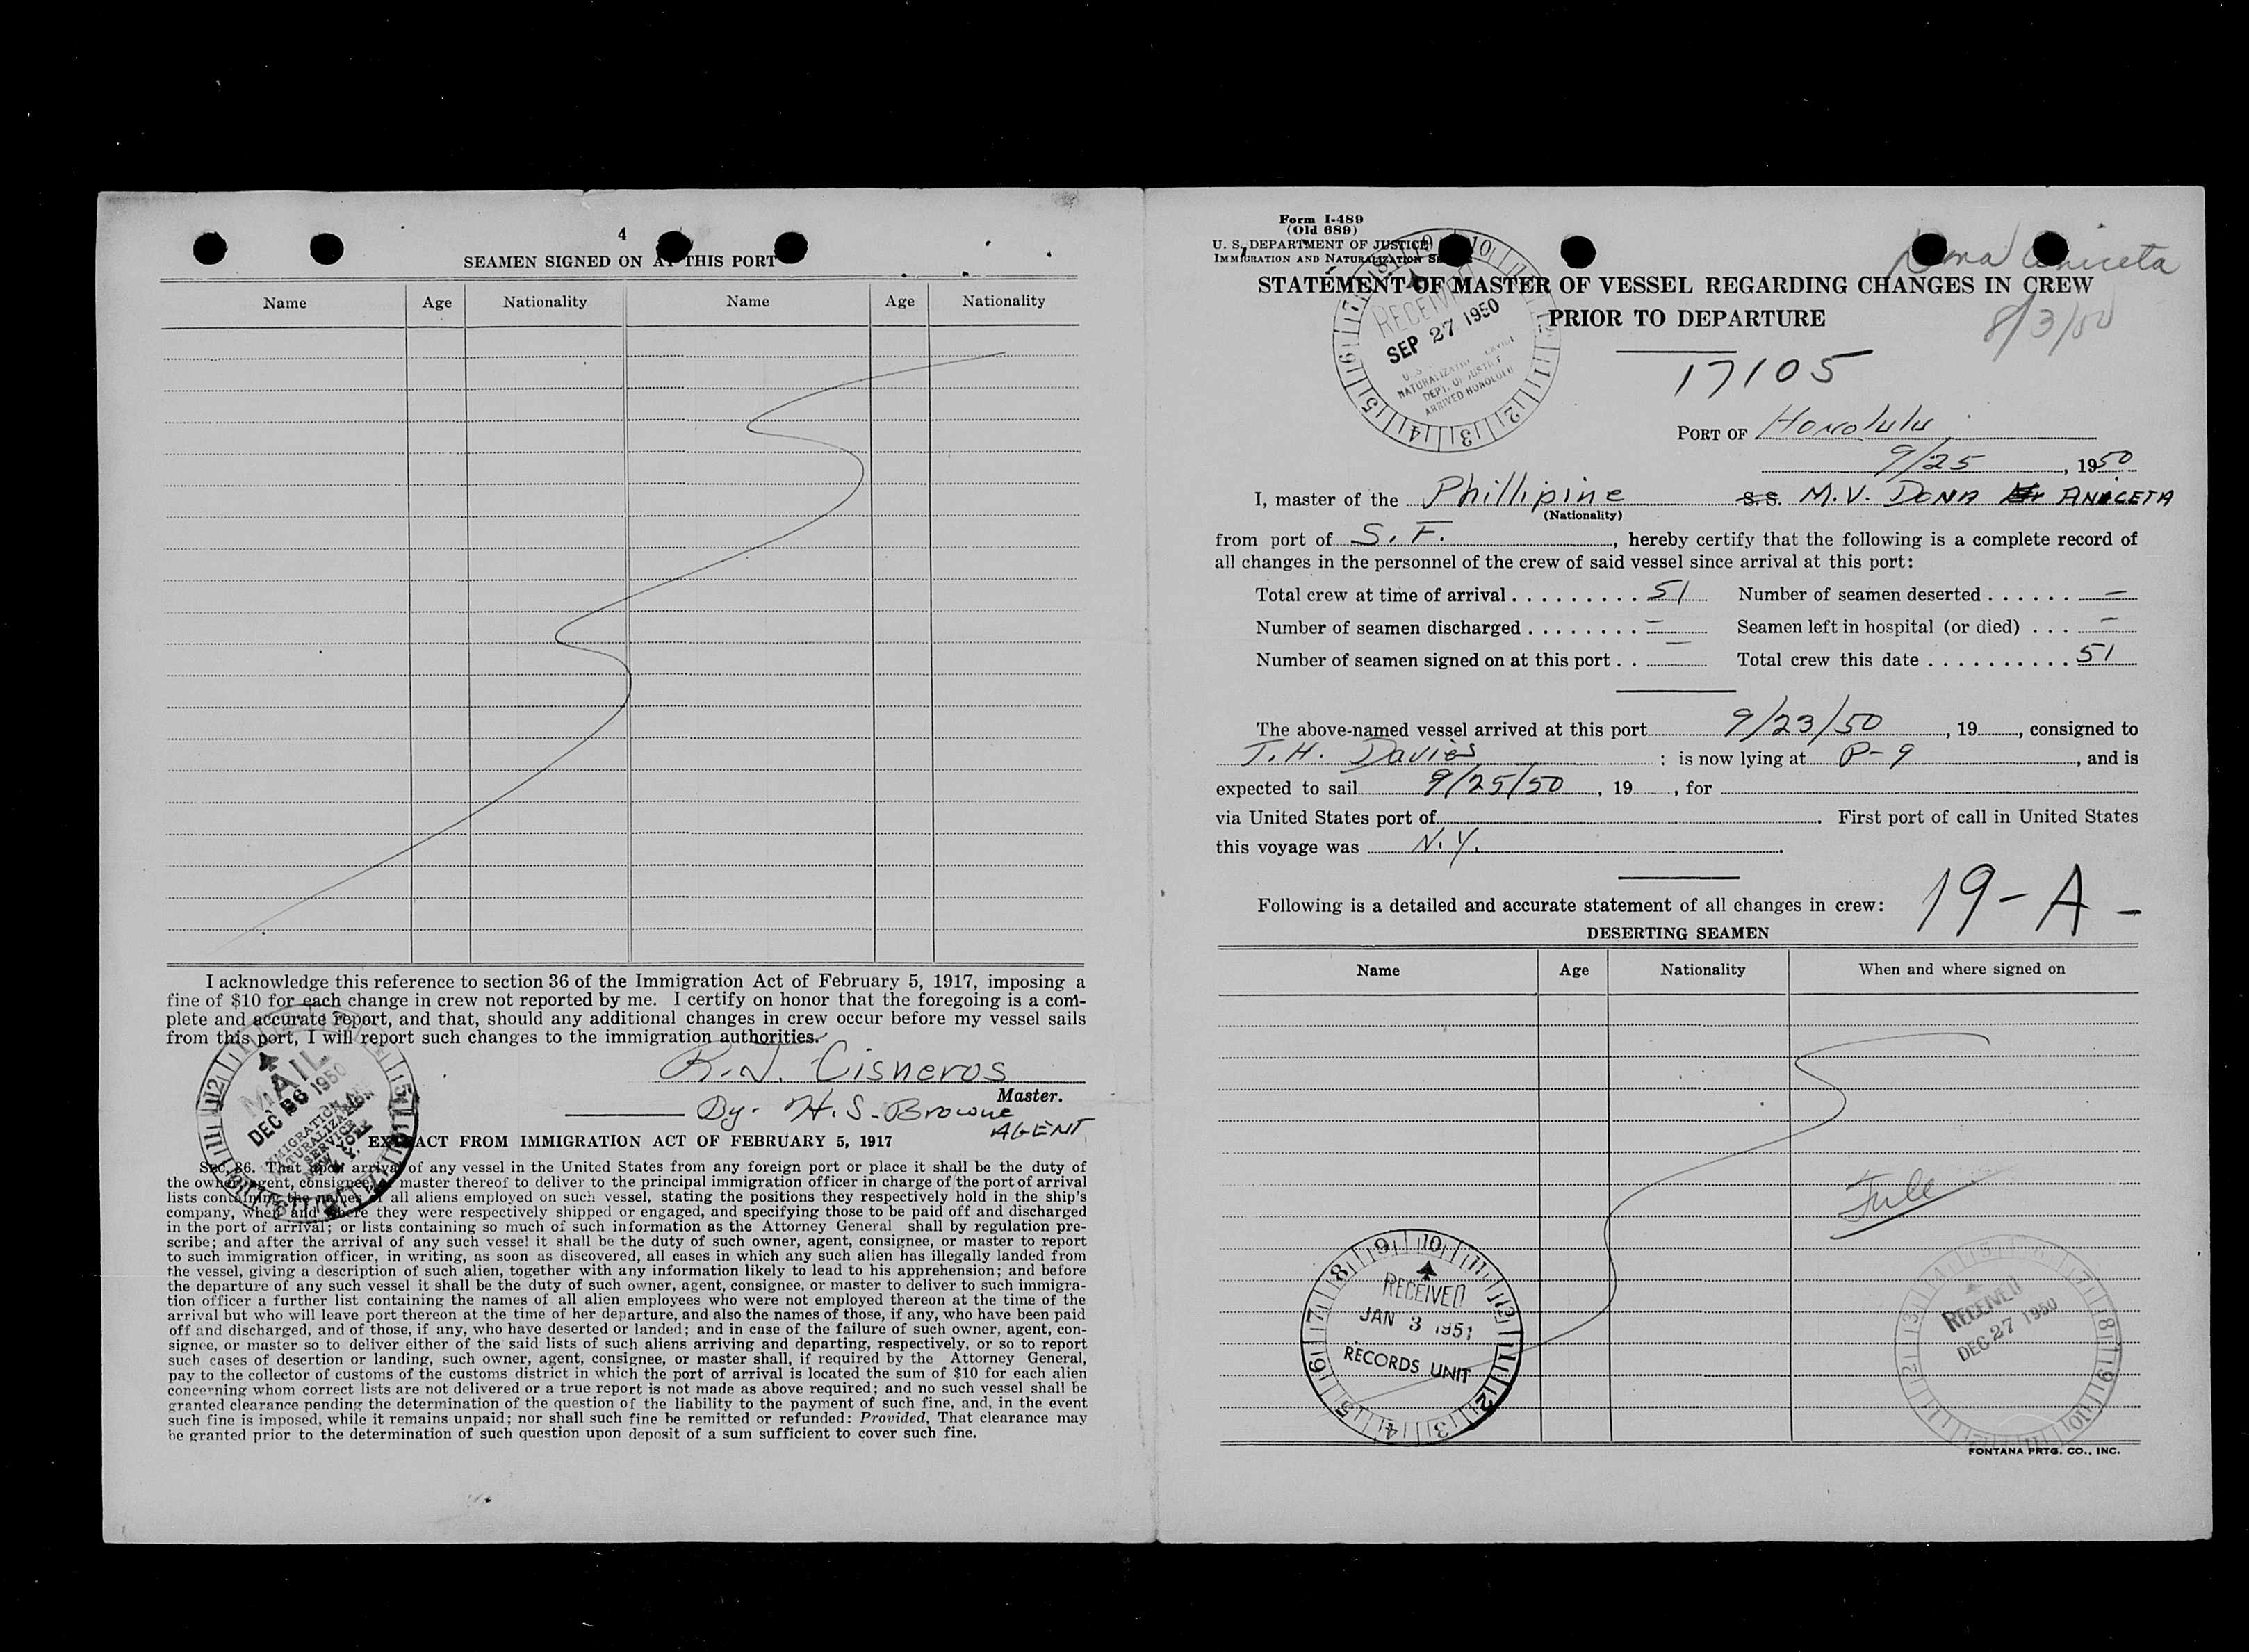 4
SEAMEN SIGNED ON AT THIS PORT
Name Age Nationality Name Age Nationality
I acknowledge this reference to section 36 of the Immigration Act of February 5, 1917, imposing a
fine of $10 for each change in crew not reported by me. I certify on honor that the foregoing is a com-
plete and accurate report, and that, should any additional changes in crew occur before my vessel sails
from this port, I will report such changes to the immigration authorities.
R. J. Cisneros
Master.
By. H. S. Browne
AGENT
MAIL
DEC 26 1950
IMMIGRATION &
NATURALIZATION
SERVICE
NEW YORK
N. Y.
EXTRACT FROM IMMIGRATION ACT OF FEBRUARY 5, 1917
Sec. 36. That upon arrival of any vessel in the United States from any foreign port or place it shall be the duty of
the owner, agent, consignee, or master thereof to deliver to the principal immigration officer in charge of the port of arrival
lists containing the names of all aliens employed on such vessel, stating the positions they respectively hold in the ship's
company, when and where they were respectively shipped or engaged, and specifying those to be paid off and discharged
in the port of arrival; or lists containing so much of such information as the Attorney General shall by regulation pre-
scribe; and after the arrival of any such vessel it shall be the duty of such owner, agent, consignee, or master to report
to such immigration officer, in writing, as soon as discovered, all cases in which any such alien has illegally landed from
the vessel, giving a description of such alien, together with any information likely to lead to his apprehension; and before
the departure of any such vessel it shall be the duty of such owner, agent, consignee, or master to deliver to such immigra-
tion officer a further list containing the names of all alien employees who were not employed thereon at the time of the
arrival but who will leave port thereon at the time of her departure, and also the names of those, if any, who have been paid
off and discharged, and of those, if any, who have deserted or landed; and in case of the failure of such owner, agent, con-
signee, or master so to deliver either of the said lists of such aliens arriving and departing, respectively, or so to report
such cases of desertion or landing, such owner, agent, consignee, or master shall, if required by the Attorney General,
pay to the collector of customs of the customs district in which the port of arrival is located the sum of $10 for each alien
concerning whom correct lists are not delivered or a true report is not made as above required; and no such vessel shall be
granted clearance pending the determination of the question of the liability to the payment of such fine, and, in the event
such fine is imposed, while it remains unpaid; nor shall such fine be remitted or refunded: Provided, That clearance may
be granted prior to the determination of such question upon deposit of a sum sufficient to cover such fine.
Form I-489
(Old 689)
U. S. DEPARTMENT OF JUSTICE
IMMIGRATION AND NATURALIZATION SERVICE
Dona Aniceta
8/3/50
STATEMENT OF MASTER OF VESSEL REGARDING CHANGES IN CREW
PRIOR TO DEPARTURE
RECEIVED
SEP 27 1950
NATURALIZATION SERVICE
DEPT. OF JUSTICE
ARRIVED HONOLULU
17105
PORT OF Honolulu
9/25, 1950
I, master of the Phillipine S.S. M.V. DONA ANICETA
(Nationality)
from port of S. F., hereby certify that the following is a complete record of
all changes in the personnel of the crew of said vessel since arrival at this port:
Total crew at time of arrival . . . . . . . . . 51 Number of seamen deserted . . . . . . –
Number of seamen discharged . . . . . . . . – Seamen left in hospital (or died) . . . –
Number of seamen signed on at this port . . – Total crew this date . . . . . . . . . . 51
The above-named vessel arrived at this port 9/23/50, 19, consigned to
T. H. Davies : is now lying at P-9, and is
expected to sail 9/25/50, 19, for
via United States port of . First port of call in United States
this voyage was N.Y.
Following is a detailed and accurate statement of all changes in crew:
19-A-
DESERTING SEAMEN
Name Age Nationality When and where signed on
RECEIVED
JAN 3 1951
RECORDS UNIT
RECEIVED
DEC 27 1950
FONTANA PRTG. CO., INC.